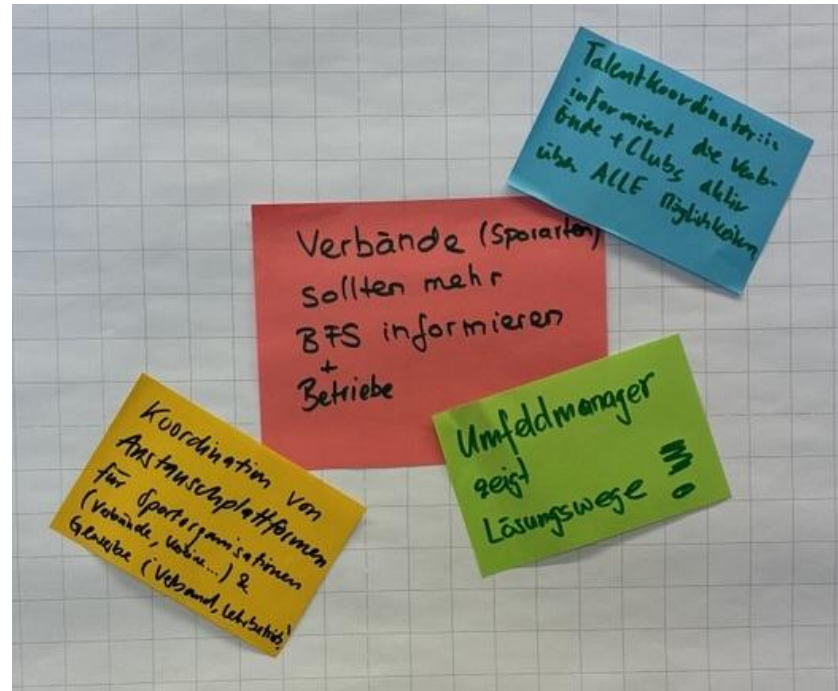 Talentkoordinator:in
informiert die Verb-
ände + Clubs aktiv
über ALLE Möglichkeiten
Verbände (Sporarten)
sollten mehr
BFS informieren
+
Betriebe
Umfeldmanager
zeigt
Lösungswege
Koordination von
Austauschplattformen
für Sportorganisationen
(Verbände, Vereine...) &
Gewerbe (Verband, Lehrbetrieb)